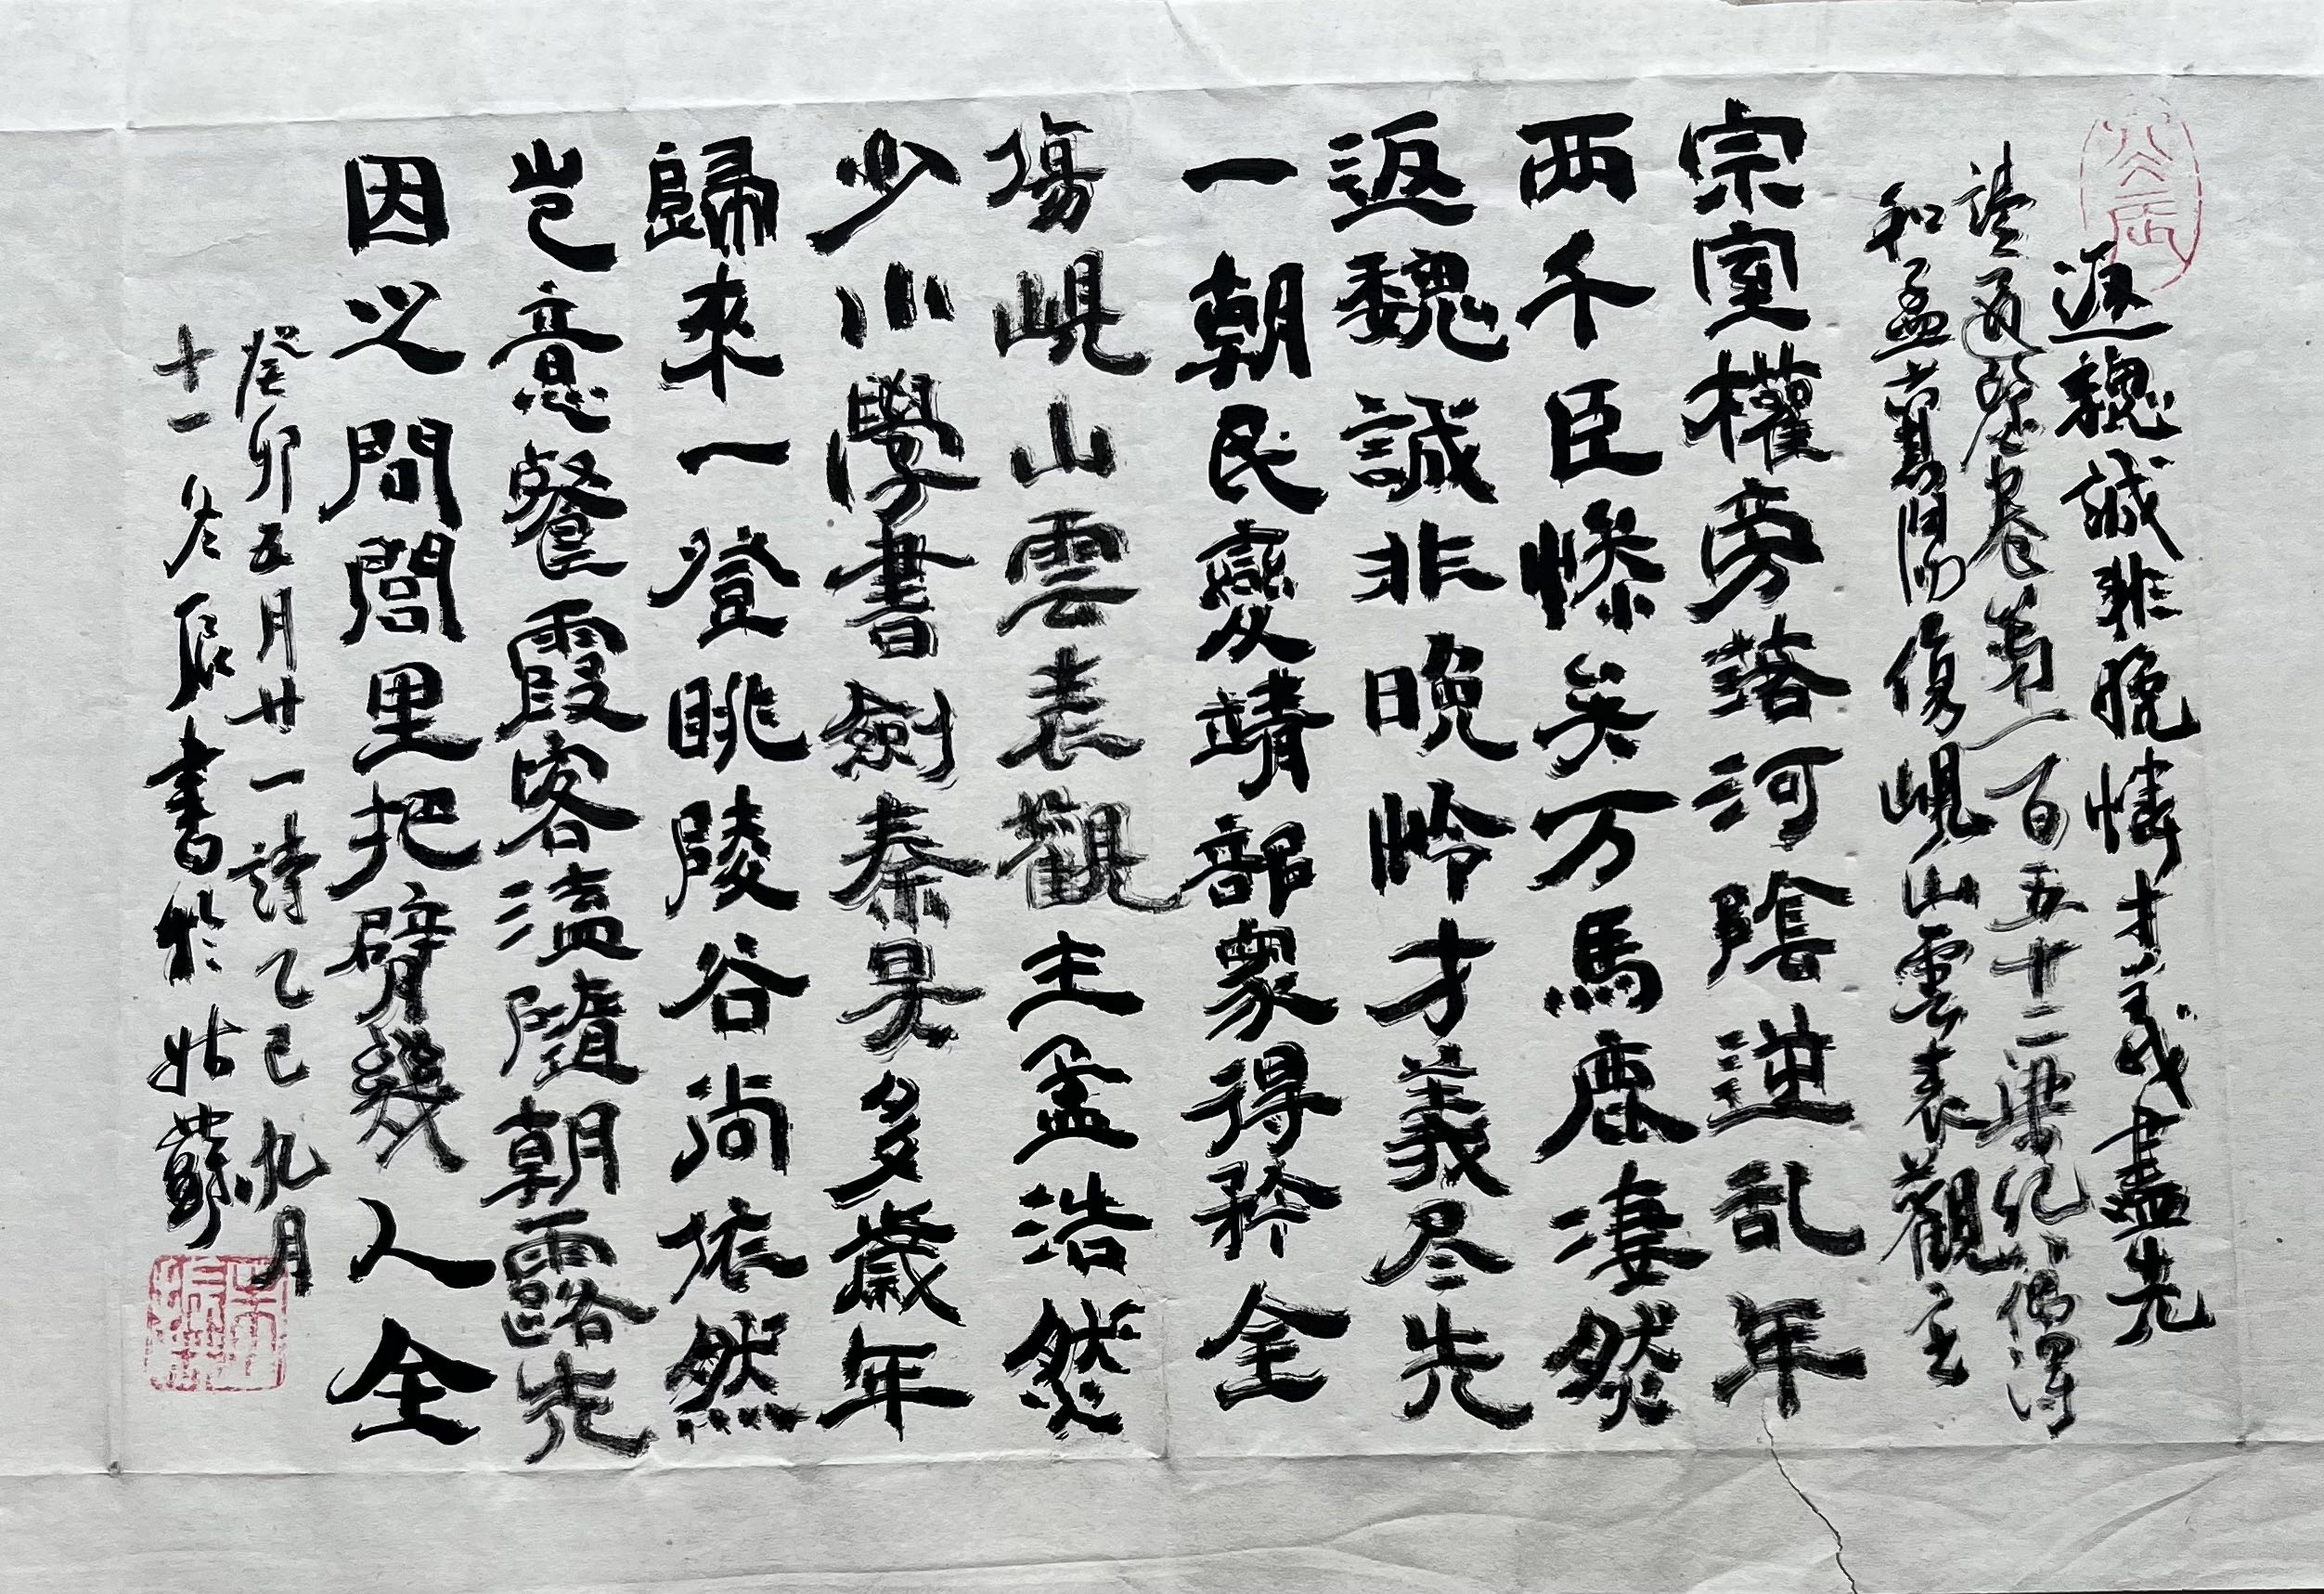 返魏誠非晚憐才義盡先
讀通鑒卷第一百五十二梁紀八偶得
和孟襄陽傷峴山雲表觀主
宗室權旁落河陰逆乱年
两千臣慘矣万馬鹿凄然
返魏誠非晚怜才義尽先
一朝民變靖部眾得矜全
傷峴山雲表觀主孟浩然
少小學書劍秦吳多歲年
歸來一登眺陵谷尚依然
豈意餐霞客溘隨朝露先
因之問閭里把臂幾人全
癸卯五月廿一詩乙巳九月
十一冬辰書於姑蘇